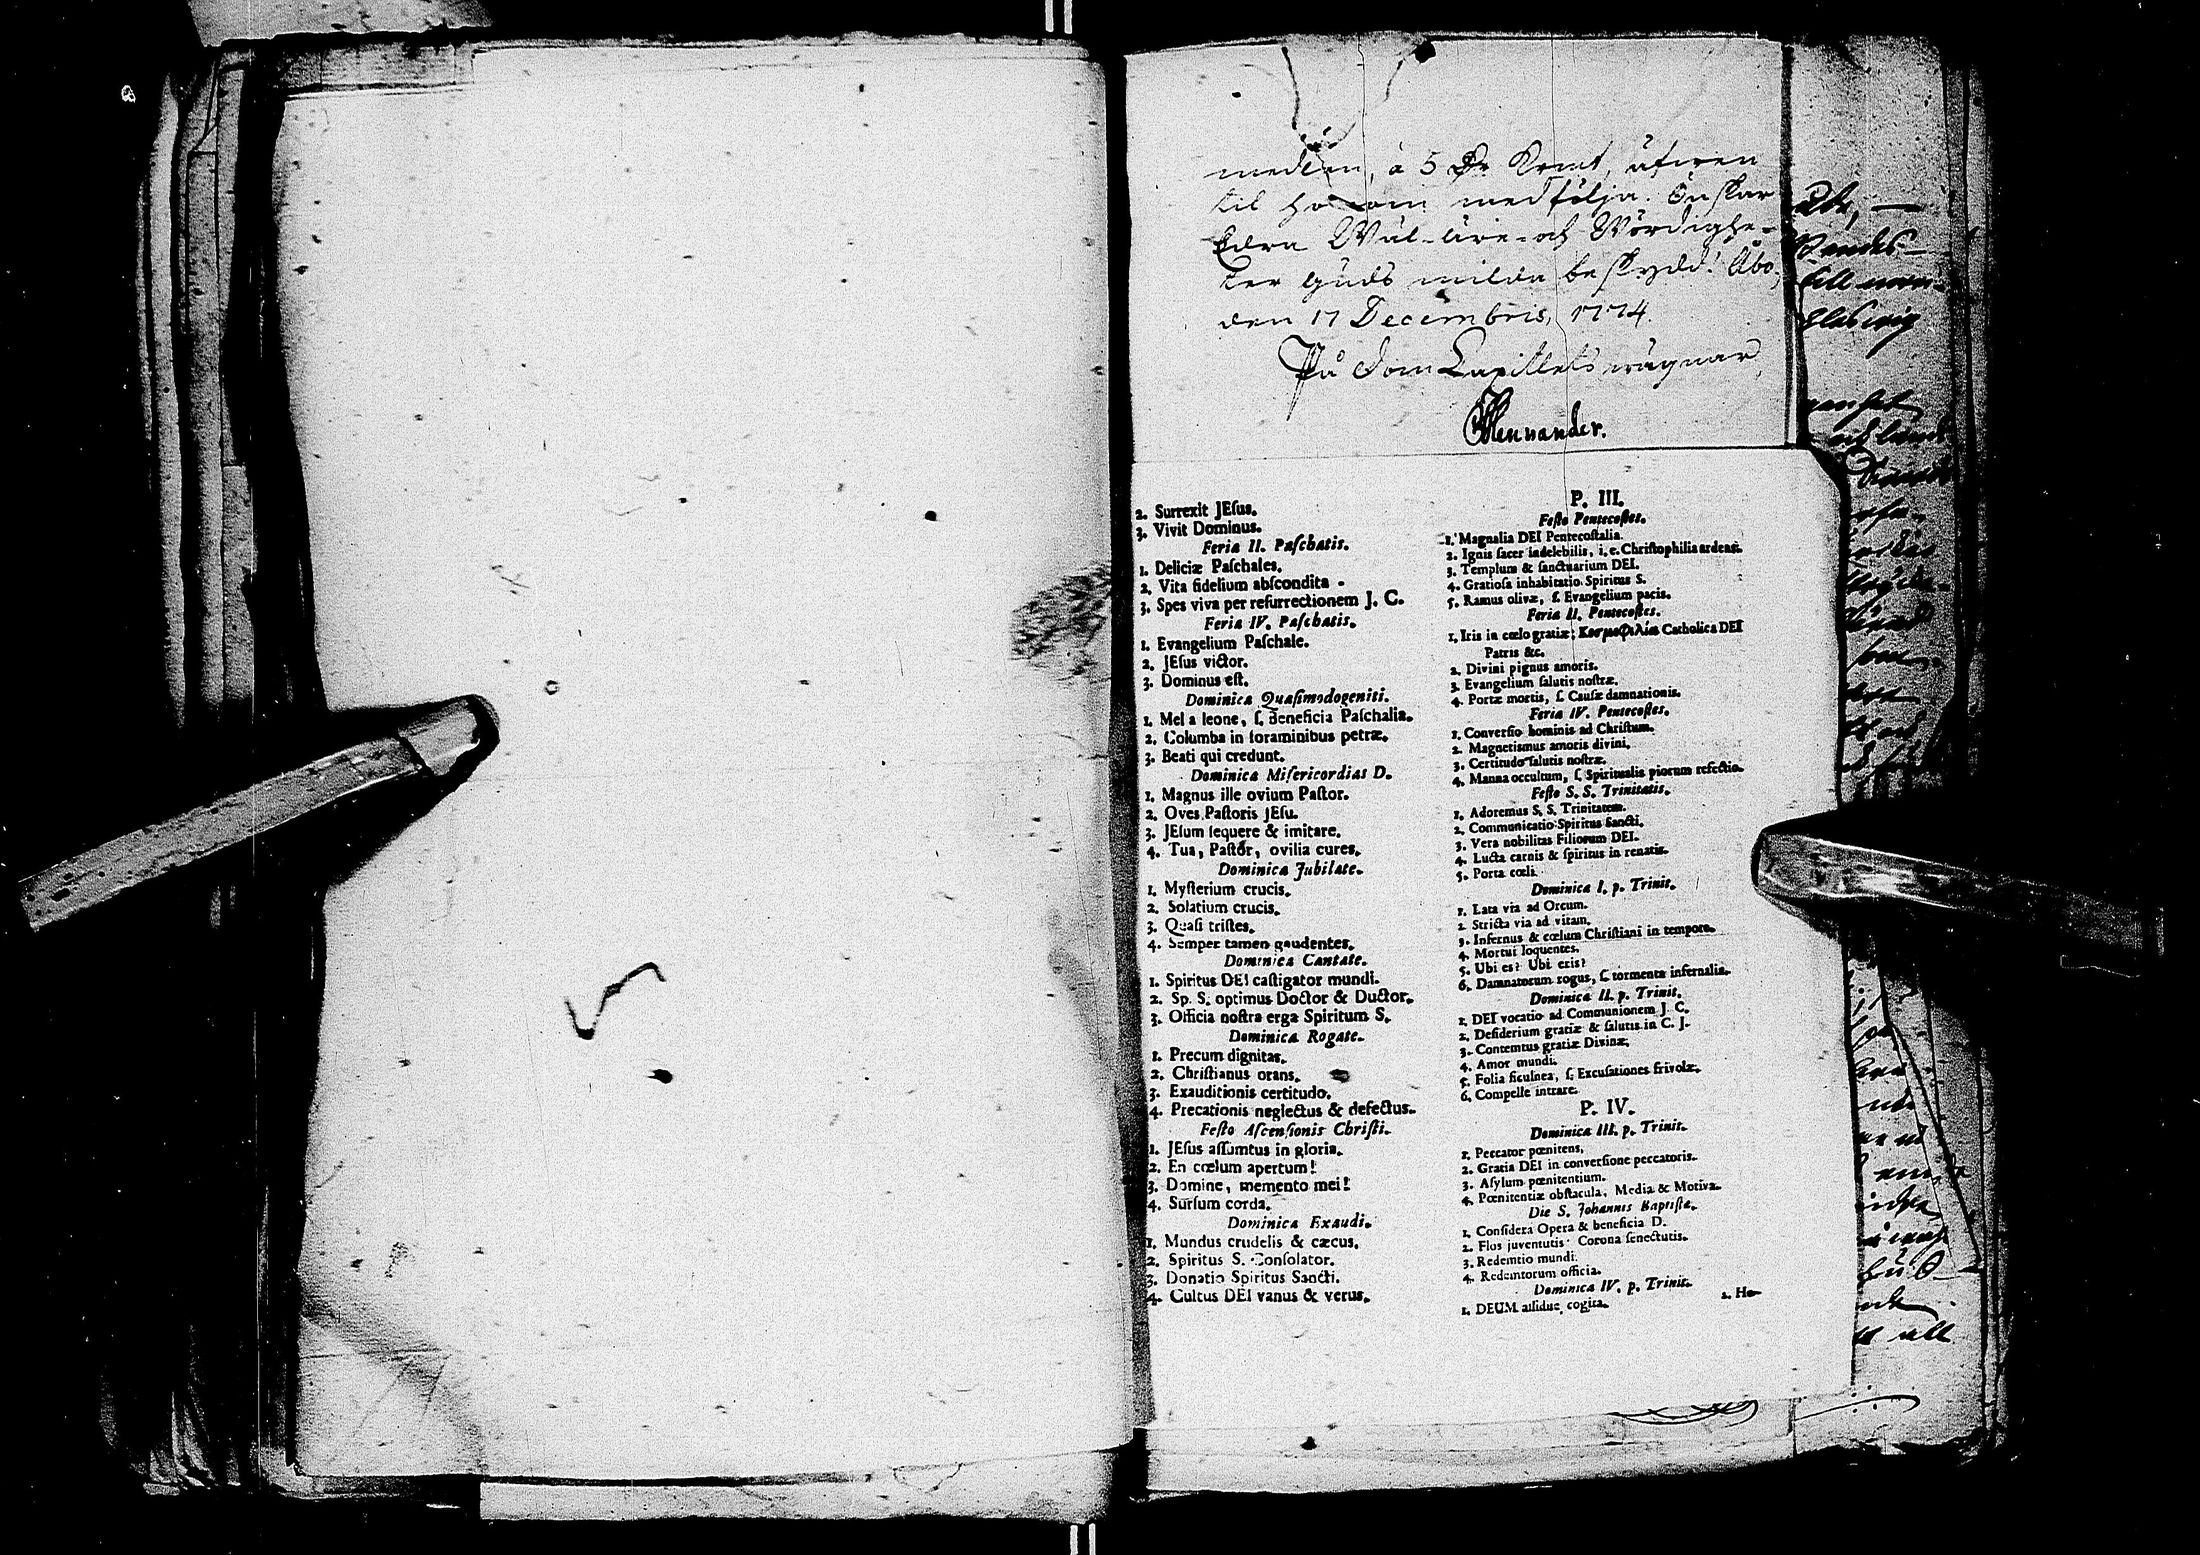 medlen, à 5 Dr Krmt, äfwen
til honom medfölja. Önskar
Edra Wäl-äre-och Wördighe-
ter Guds milda beskydd! Åbo,
den 17 Decembris, 1774.
På DomCapitlets wägnar,
Mennander.
2. Surrexit JEſus.
3. Vivit Dominus.
Feria II. Paſchatis.
1. Deliciæ Paſchales.
2. Vita fidelium abſcondita.
3. Spes viva per reſurrectionem J. C.
Feria IV. Paſchatis.
1. Evangelium Paſchale.
2. JEſus victor.
3. Dominus eſt.
Dominica Quaſimodogeniti.
1. Mel a leone, ſ. Beneficia Paſchalia.
2. Columba in foraminibus petræ.
3. Beati qui credunt.
Dominica Miſericordias D.
1. Magnus ille ovium Paſtor.
2. Oves Paſtoris JEſu.
3. JEſum ſequere & imitare.
4. Tua, Paſtor, ovilia cures.
Dominica Jubilate.
1. Myſterium crucis.
2. Solatium crucis.
3. Quaſi triſtes.
4. Semper tamen gaudentes.
Dominica Cantate.
1. Spiritus DEI caſtigator mundi.
2. Sp. S. optimus Doctor & Ductor.
3. Officia noſtra erga Spiritum S.
Dominica Rogate.
1. Precum dignitas.
2. Chriſtianus orans.
3. Exauditionis certitudo.
4. Precationis neglectus & defectus.
Feſto Aſcenſionis Chriſti.
1. JEſus aſſumtus in gloria.
2. En cœlum apertum!
3. Domine, memento mei!
4. Surſum corda.
Dominica Exaudi.
1. Mundus crudelis & cæcus.
2. Spiritus S. Conſolator.
3. Donatio Spiritus Sancti.
4. Cultus DEI vanus & verus.
P. III.
Feſto Pentecoſtes.
1. Magnalia DEI Pentecoſtalia.
2. Ignis ſacer indelebilis, i. e. Chriſtophilia ardens.
3. Templum & ſanctuarium DEI.
4. Gratioſa inhabitatio Spiritus S.
5. Ramus olivæ, ſ. Evangelium pacis.
Feria II. Pentecoſtes.
1. Iris in cœlo gratiæ; Κοσμοφιλία Catholica DEI
Patris &c.
2. Divini pignus amoris.
3. Evangelium ſalutis noſtræ.
4. Portæ mortis, ſ. Cauſæ damnationis.
Feria IV. Pentecoſtes.
1. Converſio hominis ad Chriſtum.
2. Magnetismus amoris divini.
3. Certitudo ſalutis noſtræ.
4. Manna occultum, ſ. Spiritualis piorum refectio.
Feſto S. S. Trinitatis.
1. Adoremus S. S. Trinitatem.
2. Communicatio Spiritus Sancti.
3. Vera nobilitas Filiorum DEI.
4. Lucta carnis & ſpiritus in renatis.
5. Porta cœli.
Dominica I. p. Trinit.
1. Lata via ad Orcum.
2. Stricta via ad vitam.
3. Infernus & cœlum Chriſtiani in tempore.
4. Mortui loquentes.
5. Ubi es? Ubi eris?
6. Damnatorum rogus, ſ. tormenta infernalia.
Dominica II. p. Trinit.
1. DEI vocatio ad Communionem J. C.
2. Deſiderium gratiæ & ſalutis in C. J.
3. Contemtus gratiæ Divinæ.
4. Amor mundi.
5. Folia ficulnea, ſ. Excuſationes frivolæ.
6. Compelle intrare.
P. IV.
Dominica III. p. Trinit.
1. Peccator pœnitens.
2. Gratia DEI in converſione peccatoris.
3. Aſylum pœnitentium.
4. Pœnitentiæ obſtacula, Media & Motiva.
Die S. Johannis Baptiſtæ.
1. Conſidera Opera & beneficia D.
2. Flos juventutis Corona ſenectutis.
3. Redemtio mundi.
4. Redemtorum officia.
Dominica IV. p. Trinit.
1. DEUM aſſidue cogita.
2. Ho-